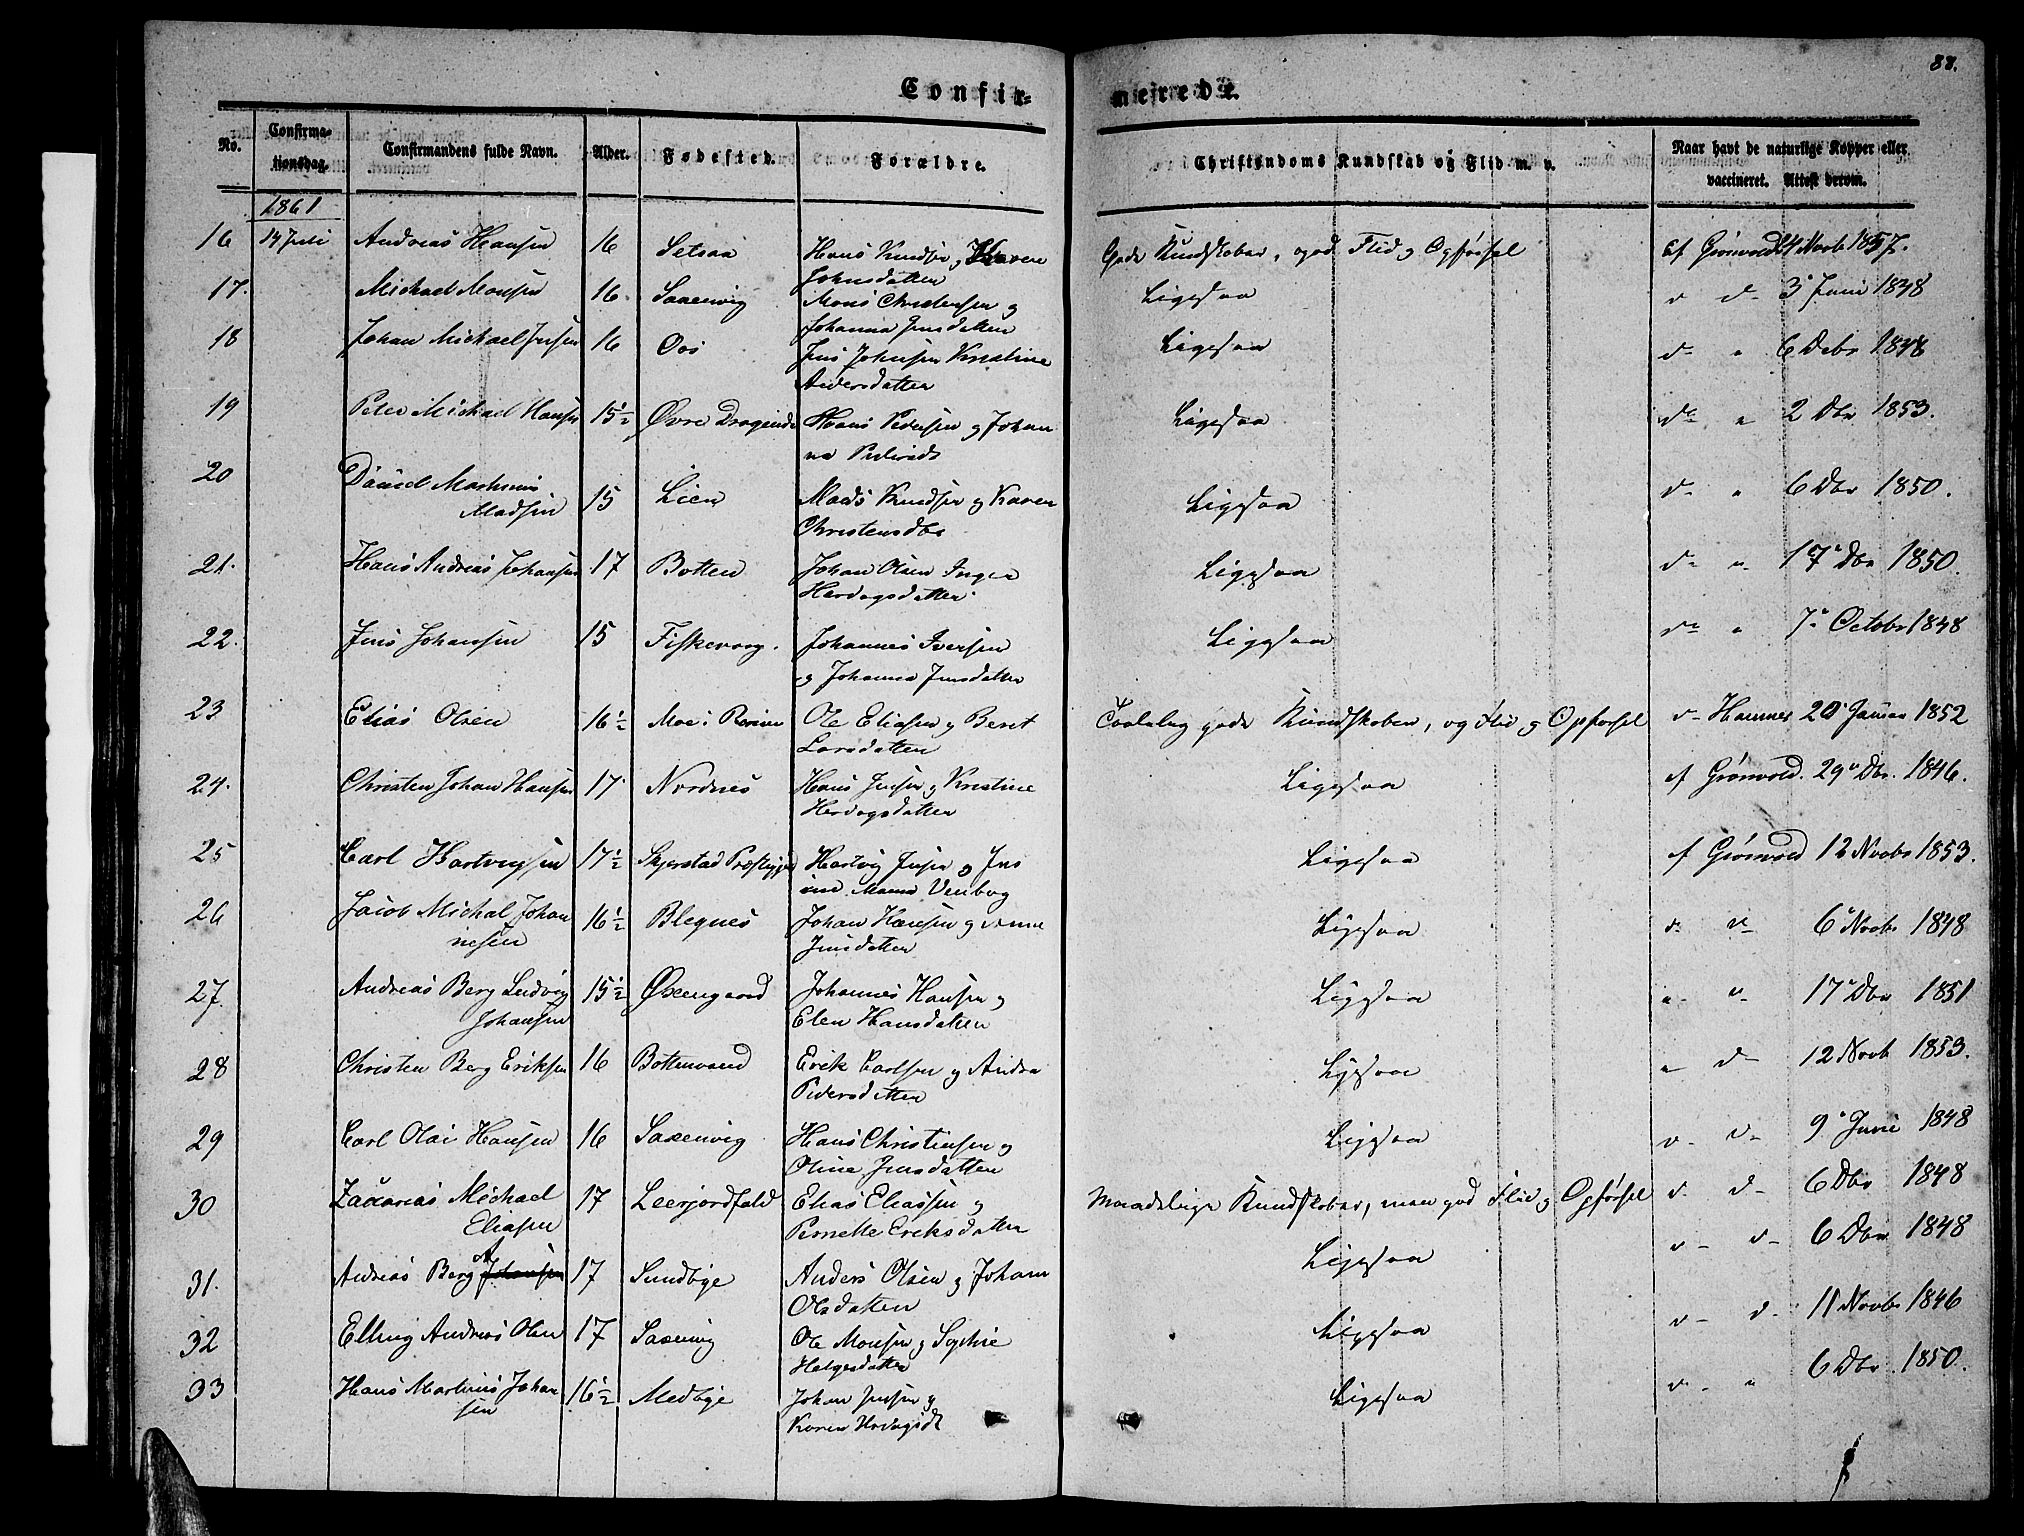 88.
Confir=
merede.
No.
Confirma-
tionsdag.
Confirmandens fulde Navn.
Alder.
Fødested.
Forældre.
Christendoms Kundskab og Flid m. v.
Naar havt de naturlige Kopper eller
vaccineret. Attest derom.
1861
16 14 Juli Andreas Hansen 16 Setsaa Hans Knudsen og Karen Gode Kundskaber, god Flid og Opførsel af Grønvold 24 Novb 1857.
Johnsdatter
17. Michael Monsen 16 Saxenvig Mons Christensen og Ligesaa 3 Juni 1848
Johanna Jensdatter
18 Johan Michael Jensen 16 Oos Jens Johnsen Kristine Ligesaa 6 Debr 1848
Andersdatter
19 Peter Michael Hansen 15½ Øvre Drageide Hans Pedersen og Johan Ligesaa 2 Dbr 1853.
na Pedersdt
20 Daniel Mathias Ligesaa 6 Dbr 1850.
Madsen 15 Lien Mads Knudsen og Karen
Christensdtr
21. Hans Andreas Johansen 17 Botten Johan Olsen Inger Ligesaa 17 Dbr 1850.
Herdagsdatter
22. Jens Johansen 15 Fiskevaag. Johannes Iversen Ligesaa 7 Octobr 1848
og Johanna Jensdatter
23 Elias Olsen 16½ Moe i Ranen Ole Eliasen og Beret Taalelig gode Kundskaber, og Flid og Opførsel Hamner 20 Januar 1852
Larsdatter
24. Christen Johan Hansen 17 Nordnes Hans Jensen og Kristine Ligesaa af Grønvold. 29 Dbr. 1846.
Herdagsdatter
25 Carl Hartvigsen 17½ Skjerstad Præstegjd Hartvig Jensen og Jens Ligesaa af Grønvold 12 Novbr 1853.
ine Maria Venbog
26 Jacob Michal Johan 16½ Blegnes Johan Hansen og Anne Ligesaa 6 Novbr 1848
nesen Jensdatter
27. Andreas Berg Ludvig 15½ Øxengaard Johannes Hansen og Ligesaa 17 Dbr 1851
Johansen Elen Hansdatter
28 Christen Berg Eriksen 16 Bottenvand Erik Carlsen og Andrea Ligesaa 12 Novb 1853.
Pedersdatter
29 Carl Olai Hansen 16 Saxenvig Hans Christensen og Ligesaa 9 Juni 1848
Oline Jensdatter
30 Zacarias Michael 17 Leerjordfald Elias Eliassen og Maadelige Kundskaber, men god Flid og Opførsel 6 Dbr 1848
Eliasen Pernelle Eriksdatter
31. Andreas Berg A Johansen 17 Sundbye Anders Olsen og Johan Ligesaa 6 Dbr 1848
Olsdatter
32 Elling Andreas Olsen 17 Saxenvig Ole Monsen og Sophie Ligesaa 11 Novbr 1846
Helgesdatter
33 Hans Martinus Johan 16½ Medbye Johan Jensen og Ligesaa 6 Dbr 1850.
sen Karen Herdagsdt